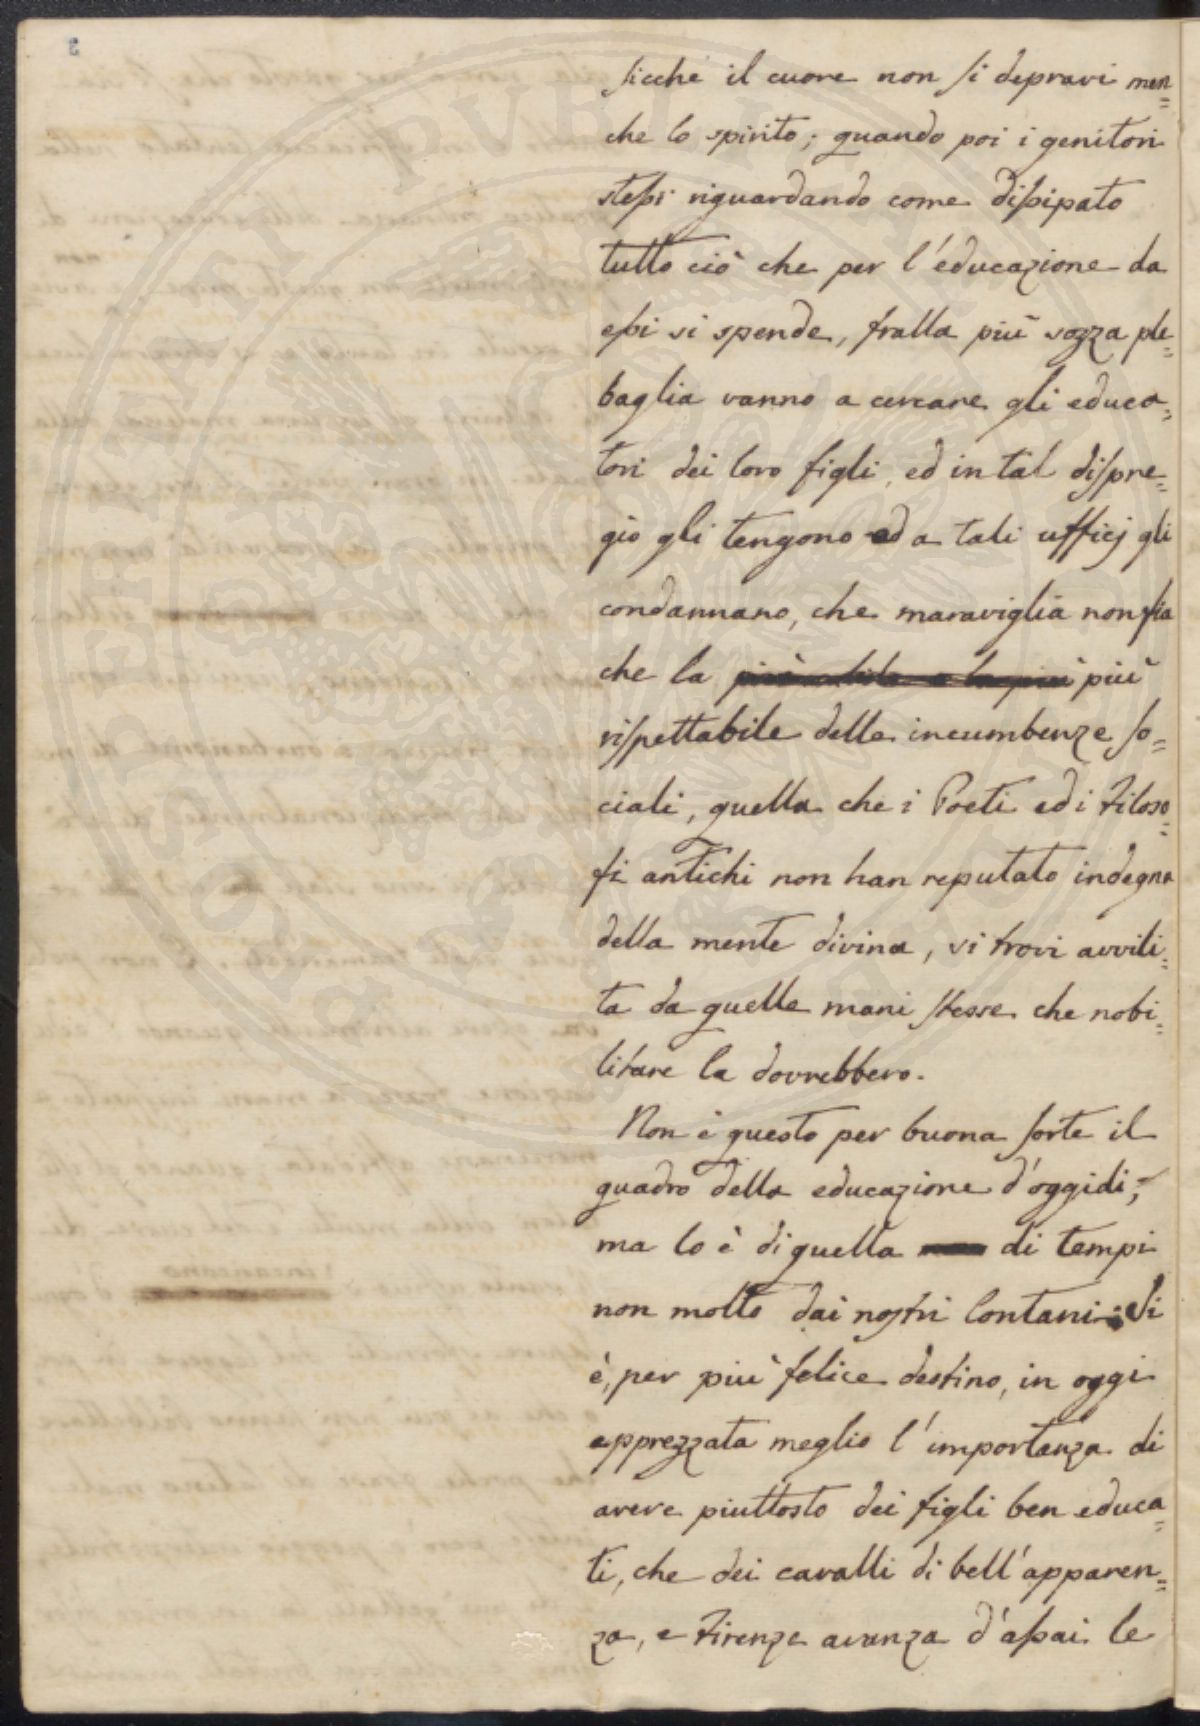 sicchè il cuore non si depravi men=
che lo spirito; quando poi i genitori
stessi riguardando come dissipato
tutto ciò che per l'educazione da
essi si spende, fralla più sozza ple=
baglia vanno a cercare gli educa=
tori dei loro figli, ed in tal dispre=
gio gli tengono ed a tali ufficj gli
condannano, che maraviglia non fia
che la più
rispettabile delle incumbenze so=
ciali, quella che i Poeti ed i Filoso=
fi antichi non han reputato indegna
della mente divina, si trovi avvili=
ta da quelle mani stesse che nobi=
litare la dovrebbero.
Non è questo per buona sorte il
quadro della educazione d'oggidi;
ma lo è di quella di tempi
non molto dai nostri lontani: Si
è, per più felice destino, in oggi
apprezzata meglio l'importanza di
avere piuttosto dei figli ben educa=
ti, che dei cavalli di bell'apparen=
za, e Firenze avanza d'assai le